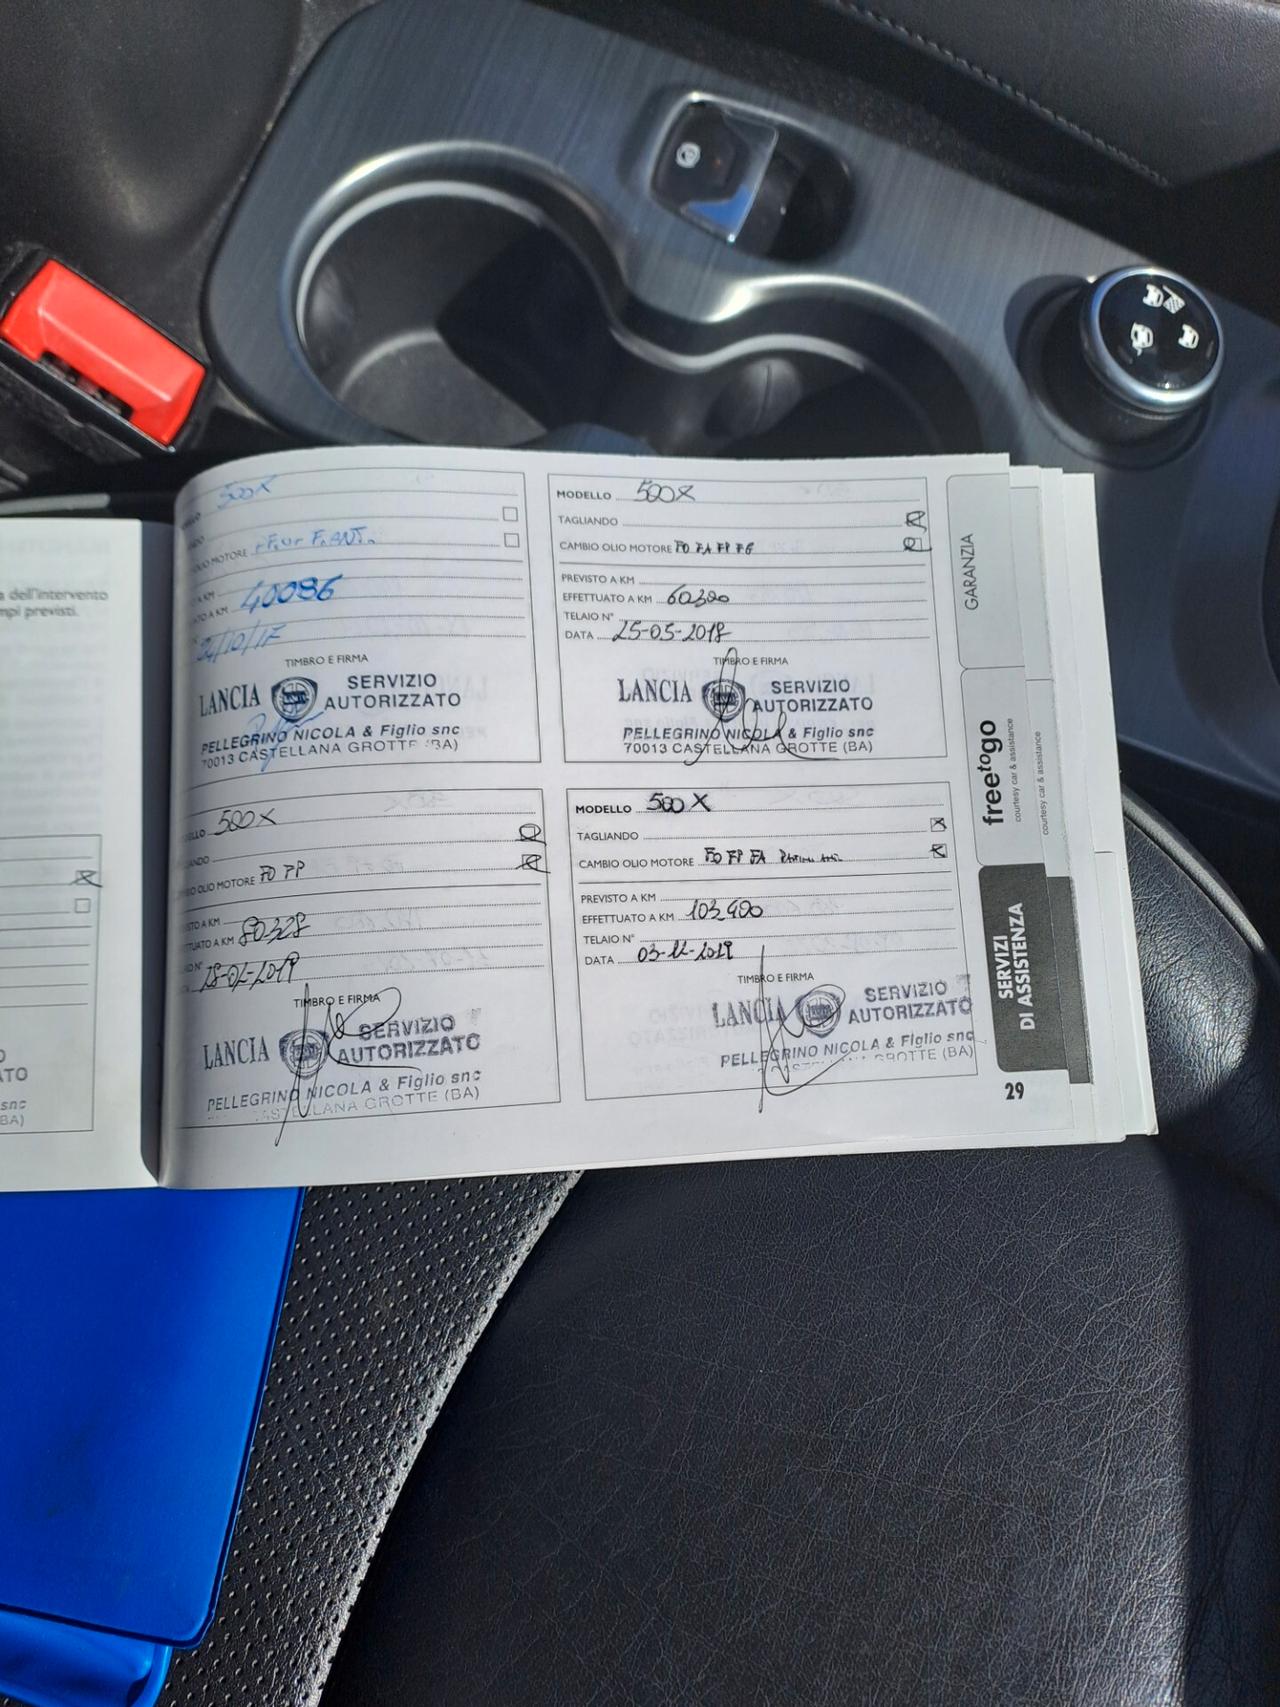 a dell'intervento
mpi previsti.
500X
OLIO MOTORE
A KM
ATO A KM 40086
24/10/17
TIMBRO E FIRMA
LANCIA SERVIZIO AUTORIZZATO
PELLEGRINO NICOLA & Figlio snc
70013 CASTELLANA GROTTE (BA)
MODELLO 500X
TAGLIANDO
CAMBIO OLIO MOTORE FO FA FP FG
PREVISTO A KM
EFFETTUATO A KM 60300
TELAIO N°
DATA 25-05-2018
TIMBRO E FIRMA
LANCIA SERVIZIO AUTORIZZATO
PELLEGRINO NICOLA & Figlio snc
70013 CASTELLANA GROTTE (BA)
DELLO 500X
ANDO
OLIO MOTORE FO PP
ISTO A KM
TTUATO A KM 80328
AIO N°
28-02-2019
TIMBRO E FIRMA
LANCIA SERVIZIO AUTORIZZATO
PELLEGRINO NICOLA & Figlio snc
CASTELLANA GROTTE (BA)
MODELLO 500X
TAGLIANDO
CAMBIO OLIO MOTORE FO FP FA
PREVISTO A KM
EFFETTUATO A KM 103900
TELAIO N°
DATA 03-12-2019
TIMBRO E FIRMA
LANCIA SERVIZIO AUTORIZZATO
PELLEGRINO NICOLA & Figlio snc
CASTELLANA GROTTE (BA)
GARANZIA
freetogo
courtesy car & assistance
courtesy car & assistance
SERVIZI
DI ASSISTENZA
29
O
ATO
snc
BA)